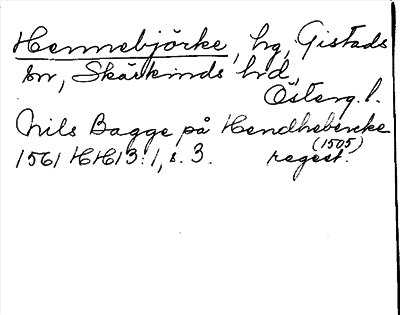 Hennebjörke, hg, Gistads
sn, Skärkinds hd,
Österg. l.
Nils Bagge på Hendhebercke
(1505)
1561 HH 13:1, s. 3. regest.